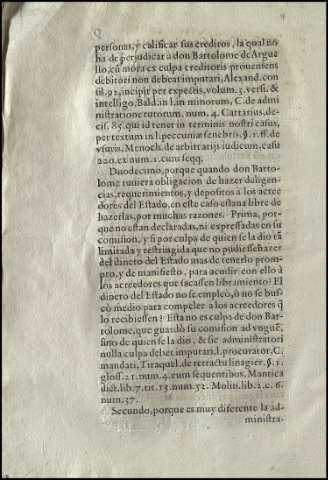 personas, y calificar sus creditos, la qual no
ha de perjudicar a don Bartolome de Argue
llo, cū mora ex culpa creditoris proueniens
debitori non debeat imputari, Alexand. con
sil. 92. incipit per expertis, volum. 3. versi. &
intelligo. Bald. in l. in minorum, C. de admi
nistratione tutorum, num. 4. Cartarius, de-
cis. 85. qui id tenet in terminis nostri casus,
per textum in l. peccuniæ fenebris, §. 1. ff. de
vsuris, Menoch. de arbitrarijs iudicum, casu
220. ex num. 1. cum seqq.
Duodecimo, porque quando don Barto-
lome tuuiera obligacion de hazer deligen-
cias, requerimientos, y depositos a los acree
dores del Estado, en este caso estaua libre de
hazerlas, por muchas razones. Prima, por-
que no estan declaradas, ni expressadas en su
comision, y si por culpa de quien se la dio tā
limitada y restringida que no pudiesse hazer
del dinero del Estado mas de tenerlo prom-
pto, y de manifiesto, para acudir con ello à
los acreedores que sacassen libramiento? El
dinero del Estado no se empleò, ò no se bus-
cò medio para compeler a los acreedores q̄
lo recibiessen? Esta no es culpa de don Bar-
tolome, que guardò su comision ad vnguē,
sino de quien se la dio, & sic administratori
nulla culpa debet imputari. l. procurator. C.
mandati, Tiraquel. de retractu linagier. §. 1.
gloss. 21. num. 4. cum sequentibus, Mantica
dict. lib. 7. tit. 15. num. 52. Molin. lib. 2. c. 6.
num. 37.
Secundo, porque es muy diferente la ad-
ministra-